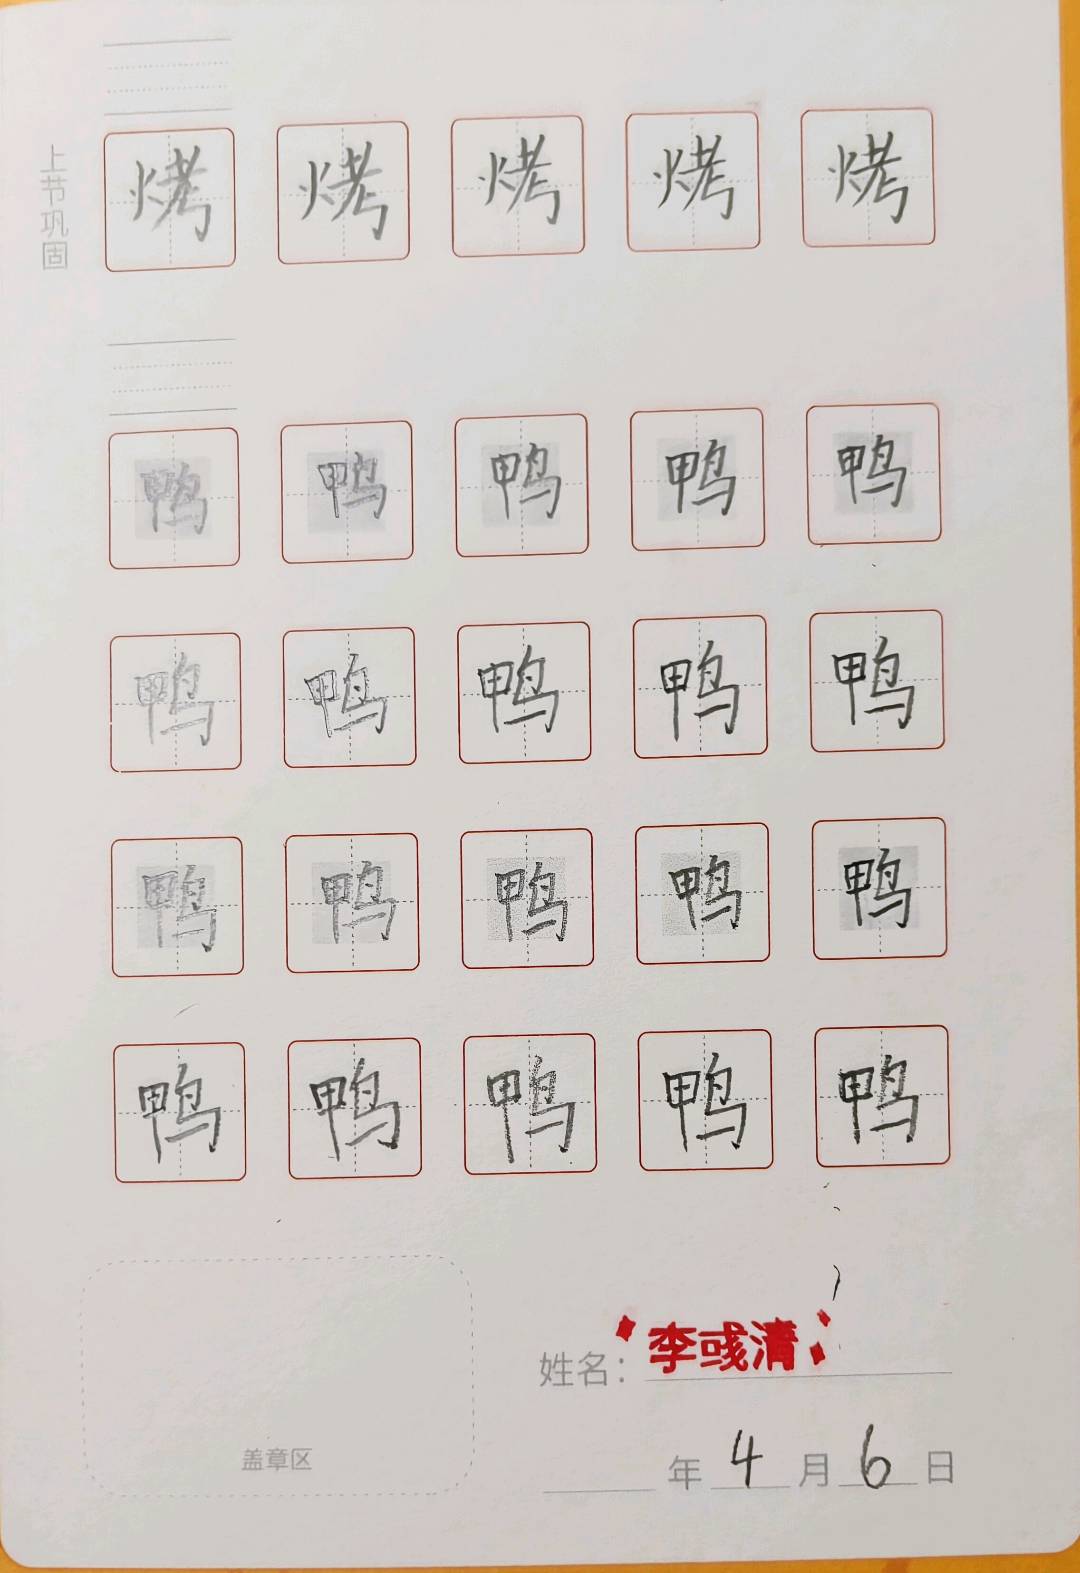 上节巩固
烤 烤 烤 烤 烤
鸭 鸭 鸭 鸭 鸭
鸭 鸭 鸭 鸭 鸭
鸭 鸭 鸭 鸭 鸭
鸭 鸭 鸭 鸭 鸭
姓名：李彧清
盖章区
年 4 月 6 日